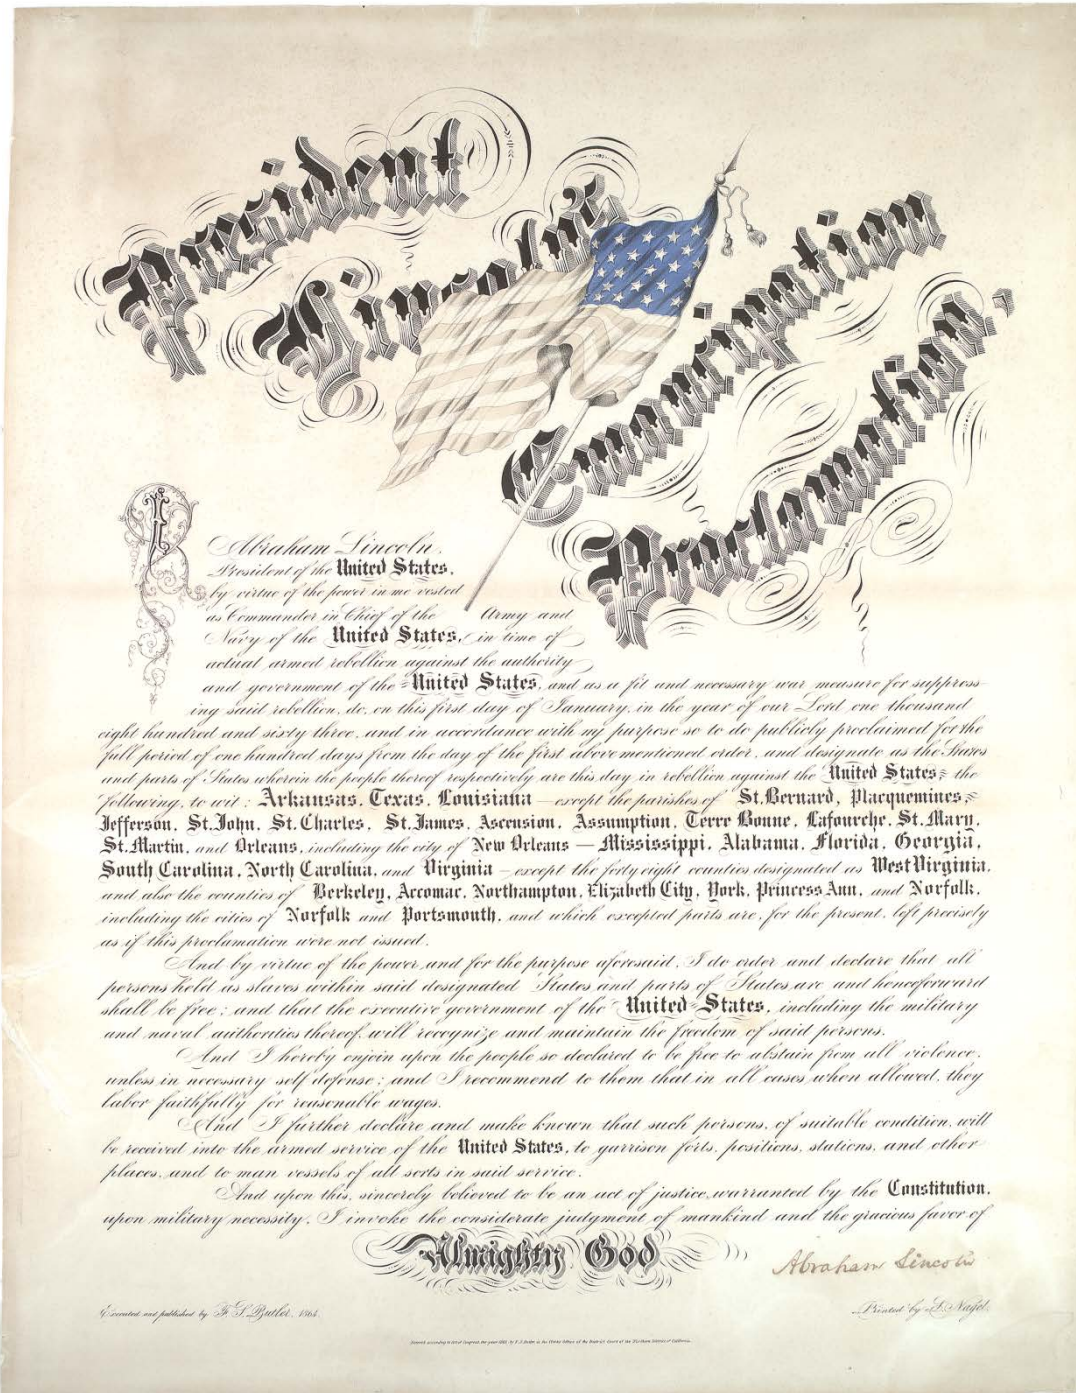 President
Lincoln's
Emancipation
Proclamation.
I
Abraham Lincoln,
President of the United States,
by virtue of the power in me vested
as Commander in Chief of the Army and
Navy of the United States, in time of
actual armed rebellion against the authority
and government of the United States, and as a fit and necessary war measure for suppress-
ing said rebellion, do, on this first day of January, in the year of our Lord one thousand
eight hundred and sixty three, and in accordance with my purpose so to do publicly proclaimed for the
full period of one hundred days from the day of the first above mentioned order, and designate as the States
and parts of States wherein the people thereof respectively are this day in rebellion against the United States, the
following, to wit: Arkansas, Texas, Louisiana – except the parishes of St. Bernard, Placquemines,
Jefferson, St. John, St. Charles, St. James, Ascension, Assumption, Terre Bonne, Lafourche, St. Mary,
St. Martin, and Orleans, including the city of New Orleans – Mississippi, Alabama, Florida, Georgia,
South Carolina, North Carolina, and Virginia – except the forty eight counties designated as West Virginia,
and also the counties of Berkeley, Accomac, Northampton, Elizabeth City, York, Princess Ann, and Norfolk,
including the cities of Norfolk and Portsmouth, and which excepted parts are, for the present, left precisely
as if this proclamation were not issued.
And by virtue of the power and for the purpose aforesaid, I do order and declare that all
persons held as slaves within said designated States and parts of States are and henceforward
shall be free; and that the executive government of the United States, including the military
and naval authorities thereof, will recognize and maintain the freedom of said persons.
And I hereby enjoin upon the people so declared to be free to abstain from all violence,
unless in necessary self defense; and I recommend to them that in all cases, when allowed, they
labor faithfully for reasonable wages.
And I further declare and make known that such persons, of suitable condition, will
be received into the armed service of the United States, to garrison forts, positions, stations, and other
places, and to man vessels of all sorts in said service.
And upon this, sincerely believed to be an act of justice, warranted by the Constitution,
upon military necessity, I invoke the considerate judgment of mankind and the gracious favor of
Almighty God
Abraham Lincoln
Executed and published by F. S. Butler, 1864.
Printed by L. Nagel.